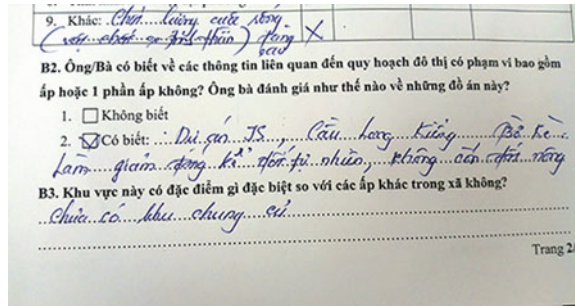 9. Khác: Chất lượng cuộc sống
(vật chất & tinh thần) tăng X
cao
B2. Ông/Bà có biết về các thông tin liên quan đến quy hoạch đô thị có phạm vi bao gồm
ấp hoặc 1 phần ấp không? Ông bà đánh giá như thế nào về những đồ án này?
1. Không biết
2. Có biết: Dự án JS, Cầu Long Kiểng Bờ kè.
Làm giảm đáng kể đất tự nhiên, không còn đất nông
B3. Khu vực này có đặc điểm gì đặc biệt so với các ấp khác trong xã không?
Chưa có khu chung cư
Trang 2/